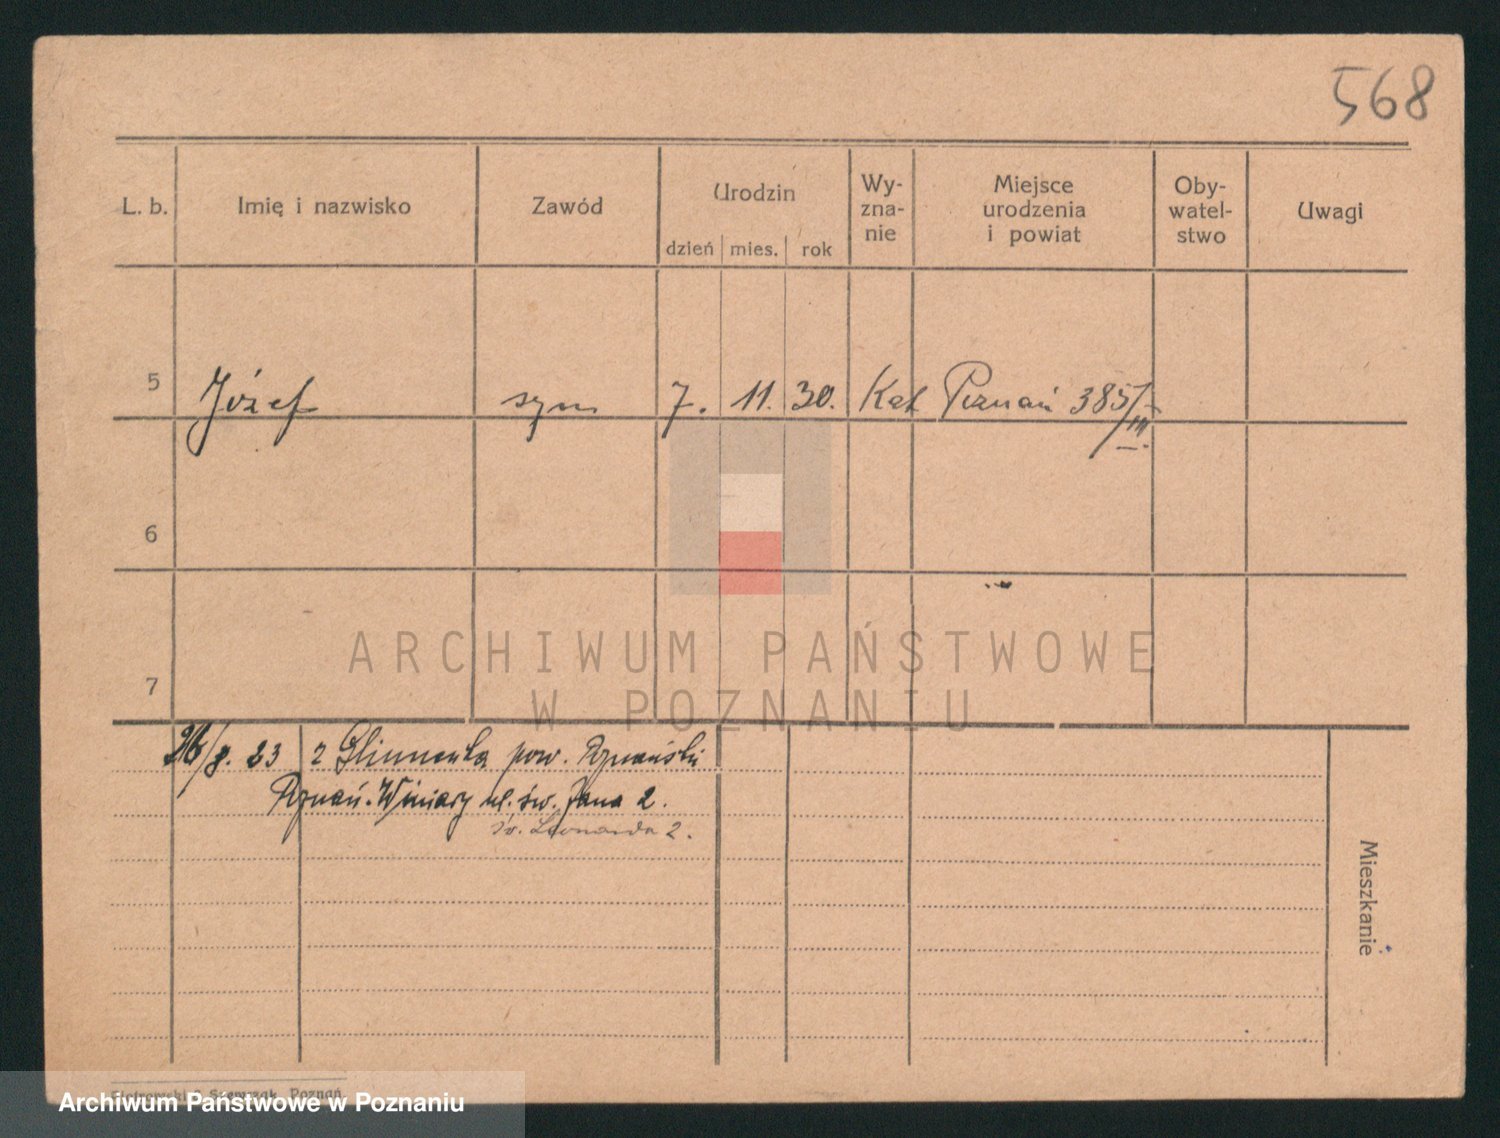 568
L. b. Imię i nazwisko Zawód Urodzin Wy-zna-nie Miejsce urodzenia i powiat Oby-watel-stwo Uwagi
dzień mies. rok
5 Józef syn 7. 11. 30. Kat Poznań 385/III.
6
7
ARCHIWUM PAŃSTWOWE
W POZNANIU
26/8. 23 z Glinienka pow. Poznański
Poznań-Winiary ul. św. Jana 2.
św. Leonarda 2.
Mieszkanie
Poznań
Archiwum Państwowe w Poznaniu